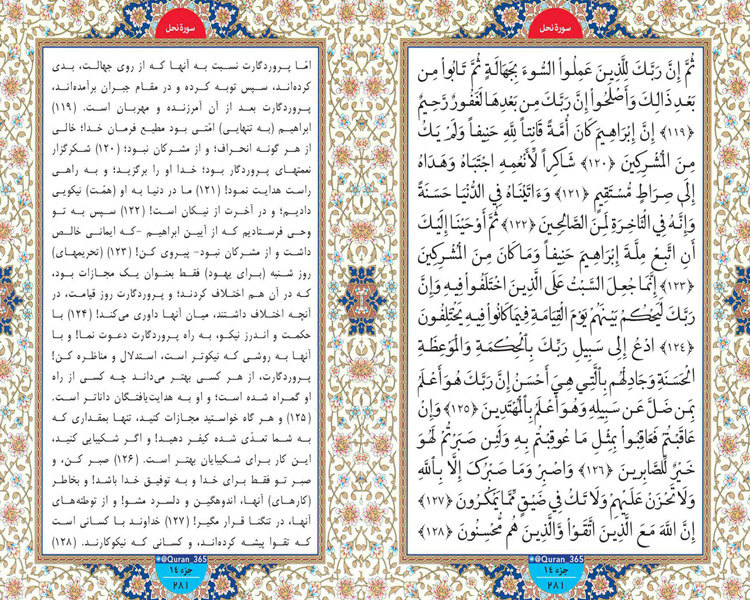 سورۀ نحل
ثُمَّ إِنَّ رَبَّكَ لِلَّذِينَ عَمِلُوا۟ السُّوءَ بِجَهَالَةٍ ثُمَّ تَابُوا۟ مِن
بَعْدِ ذَالِكَ وَأَصْلَحُوا۟ إِنَّ رَبَّكَ مِن بَعْدِهَا لَغَفُورٌ رَّحِيمٌ
﴿۱۱۹﴾ إِنَّ إِبْرَاهِيمَ كَانَ أُمَّةً قَانِتاً لِلَّهِ حَنِيفاً وَلَمْ يَكُ
مِنَ الْمُشْرِكِينَ ﴿۱۲۰﴾ شَاكِراً لِّأَنْعُمِهِ اجْتَبَاهُ وَهَدَاهُ
إِلَى صِرَاطٍ مُّسْتَقِيمٍ ﴿۱۲۱﴾ وَءَاتَيْنَاهُ فِي الدُّنْيَا حَسَنَةً
وَإِنَّهُ فِي الْآخِرَةِ لَمِنَ الصَّالِحِينَ ﴿۱۲۲﴾ ثُمَّ أَوْحَيْنَا إِلَيْكَ
أَنِ اتَّبِعْ مِلَّةَ إِبْرَاهِيمَ حَنِيفاً وَمَا كَانَ مِنَ الْمُشْرِكِينَ
﴿۱۲۳﴾ إِنَّمَا جُعِلَ السَّبْتُ عَلَى الَّذِينَ اخْتَلَفُوا۟ فِيهِ وَإِنَّ
رَبَّكَ لَيَحْكُمُ بَيْنَهُمْ يَوْمَ الْقِيَامَةِ فِيمَا كَانُوا۟ فِيهِ يَخْتَلِفُونَ
﴿۱۲۴﴾ ادْعُ إِلَى سَبِيلِ رَبِّكَ بِالْحِكْمَةِ وَالْمَوْعِظَةِ
الْحَسَنَةِ وَجَادِلْهُم بِالَّتِي هِيَ أَحْسَنُ إِنَّ رَبَّكَ هُوَ أَعْلَمُ
بِمَن ضَلَّ عَن سَبِيلِهِ وَهُوَ أَعْلَمُ بِالْمُهْتَدِينَ ﴿۱۲۵﴾ وَإِنْ
عَاقَبْتُمْ فَعَاقِبُوا۟ بِمِثْلِ مَا عُوقِبْتُم بِهِ وَلَئِن صَبَرْتُمْ لَهُوَ
خَيْرٌ لِّلصَّابِرِينَ ﴿۱۲۶﴾ وَاصْبِرْ وَمَا صَبْرُكَ إِلَّا بِاللَّهِ
وَلَا تَحْزَنْ عَلَيْهِمْ وَلَا تَكُ فِي ضَيْقٍ مِّمَّا يَمْكُرُونَ ﴿۱۲۷﴾
إِنَّ اللَّهَ مَعَ الَّذِينَ اتَّقَوْا۟ وَالَّذِينَ هُم مُّحْسِنُونَ ﴿۱۲۸﴾
@Quran_365
جزء ۱٤
۲۸۱
سورۀ نحل
امّا پروردگارت نسبت به آنها که از روی جهالت، بدی
کرده‌اند، سپس توبه کرده و در مقام جبران برآمده‌اند،
پروردگارت بعد از آن آمرزنده و مهربان است. (۱۱۹)
ابراهیم (به تنهایی) امّتی بود مطیع فرمان خدا؛ خالی
از هر گونه انحراف؛ و از مشرکان نبود؛ (۱۲۰) شکرگزار
نعمتهای پروردگار بود؛ خدا او را برگزید؛ و به راهی
راست هدایت نمود! (۱۲۱) ما در دنیا به او (همّت) نیکویی
دادیم؛ و در آخرت از نیکان است! (۱۲۲) سپس به تو
وحی فرستادیم که از آیین ابراهیم -که ایمانی خالص
داشت و از مشرکان نبود- پیروی کن! (۱۲۳) (تحریمهای)
روز شنبه (برای یهود) فقط بعنوان یک مجازات بود،
که در آن هم اختلاف کردند؛ و پروردگارت روز قیامت، در
آنچه اختلاف داشتند، میان آنها داوری می‌کند! (۱۲۴) با
حکمت و اندرز نیکو، به راه پروردگارت دعوت نما! و با
آنها به روشی که نیکوتر است، استدلال و مناظره کن!
پروردگارت، از هر کسی بهتر می‌داند چه کسی از راه
او گمراه شده است؛ و او به هدایت‌یافتگان داناتر است.
(۱۲۵) و هر گاه خواستید مجازات کنید، تنها بمقداری که
به شما تعدّی شده کیفر دهید! و اگر شکیبایی کنید،
این کار برای شکیبایان بهتر است. (۱۲۶) صبر کن، و
صبر تو فقط برای خدا و به توفیق خدا باشد! و بخاطر
(کارهای) آنها، اندوهگین و دلسرد مشو! و از توطئه‌های
آنها، در تنگنا قرار مگیر! (۱۲۷) خداوند با کسانی است
که تقوا پیشه کرده‌اند، و کسانی که نیکوکارند. (۱۲۸)
@Quran_365
جزء ۱٤
۲۸۱